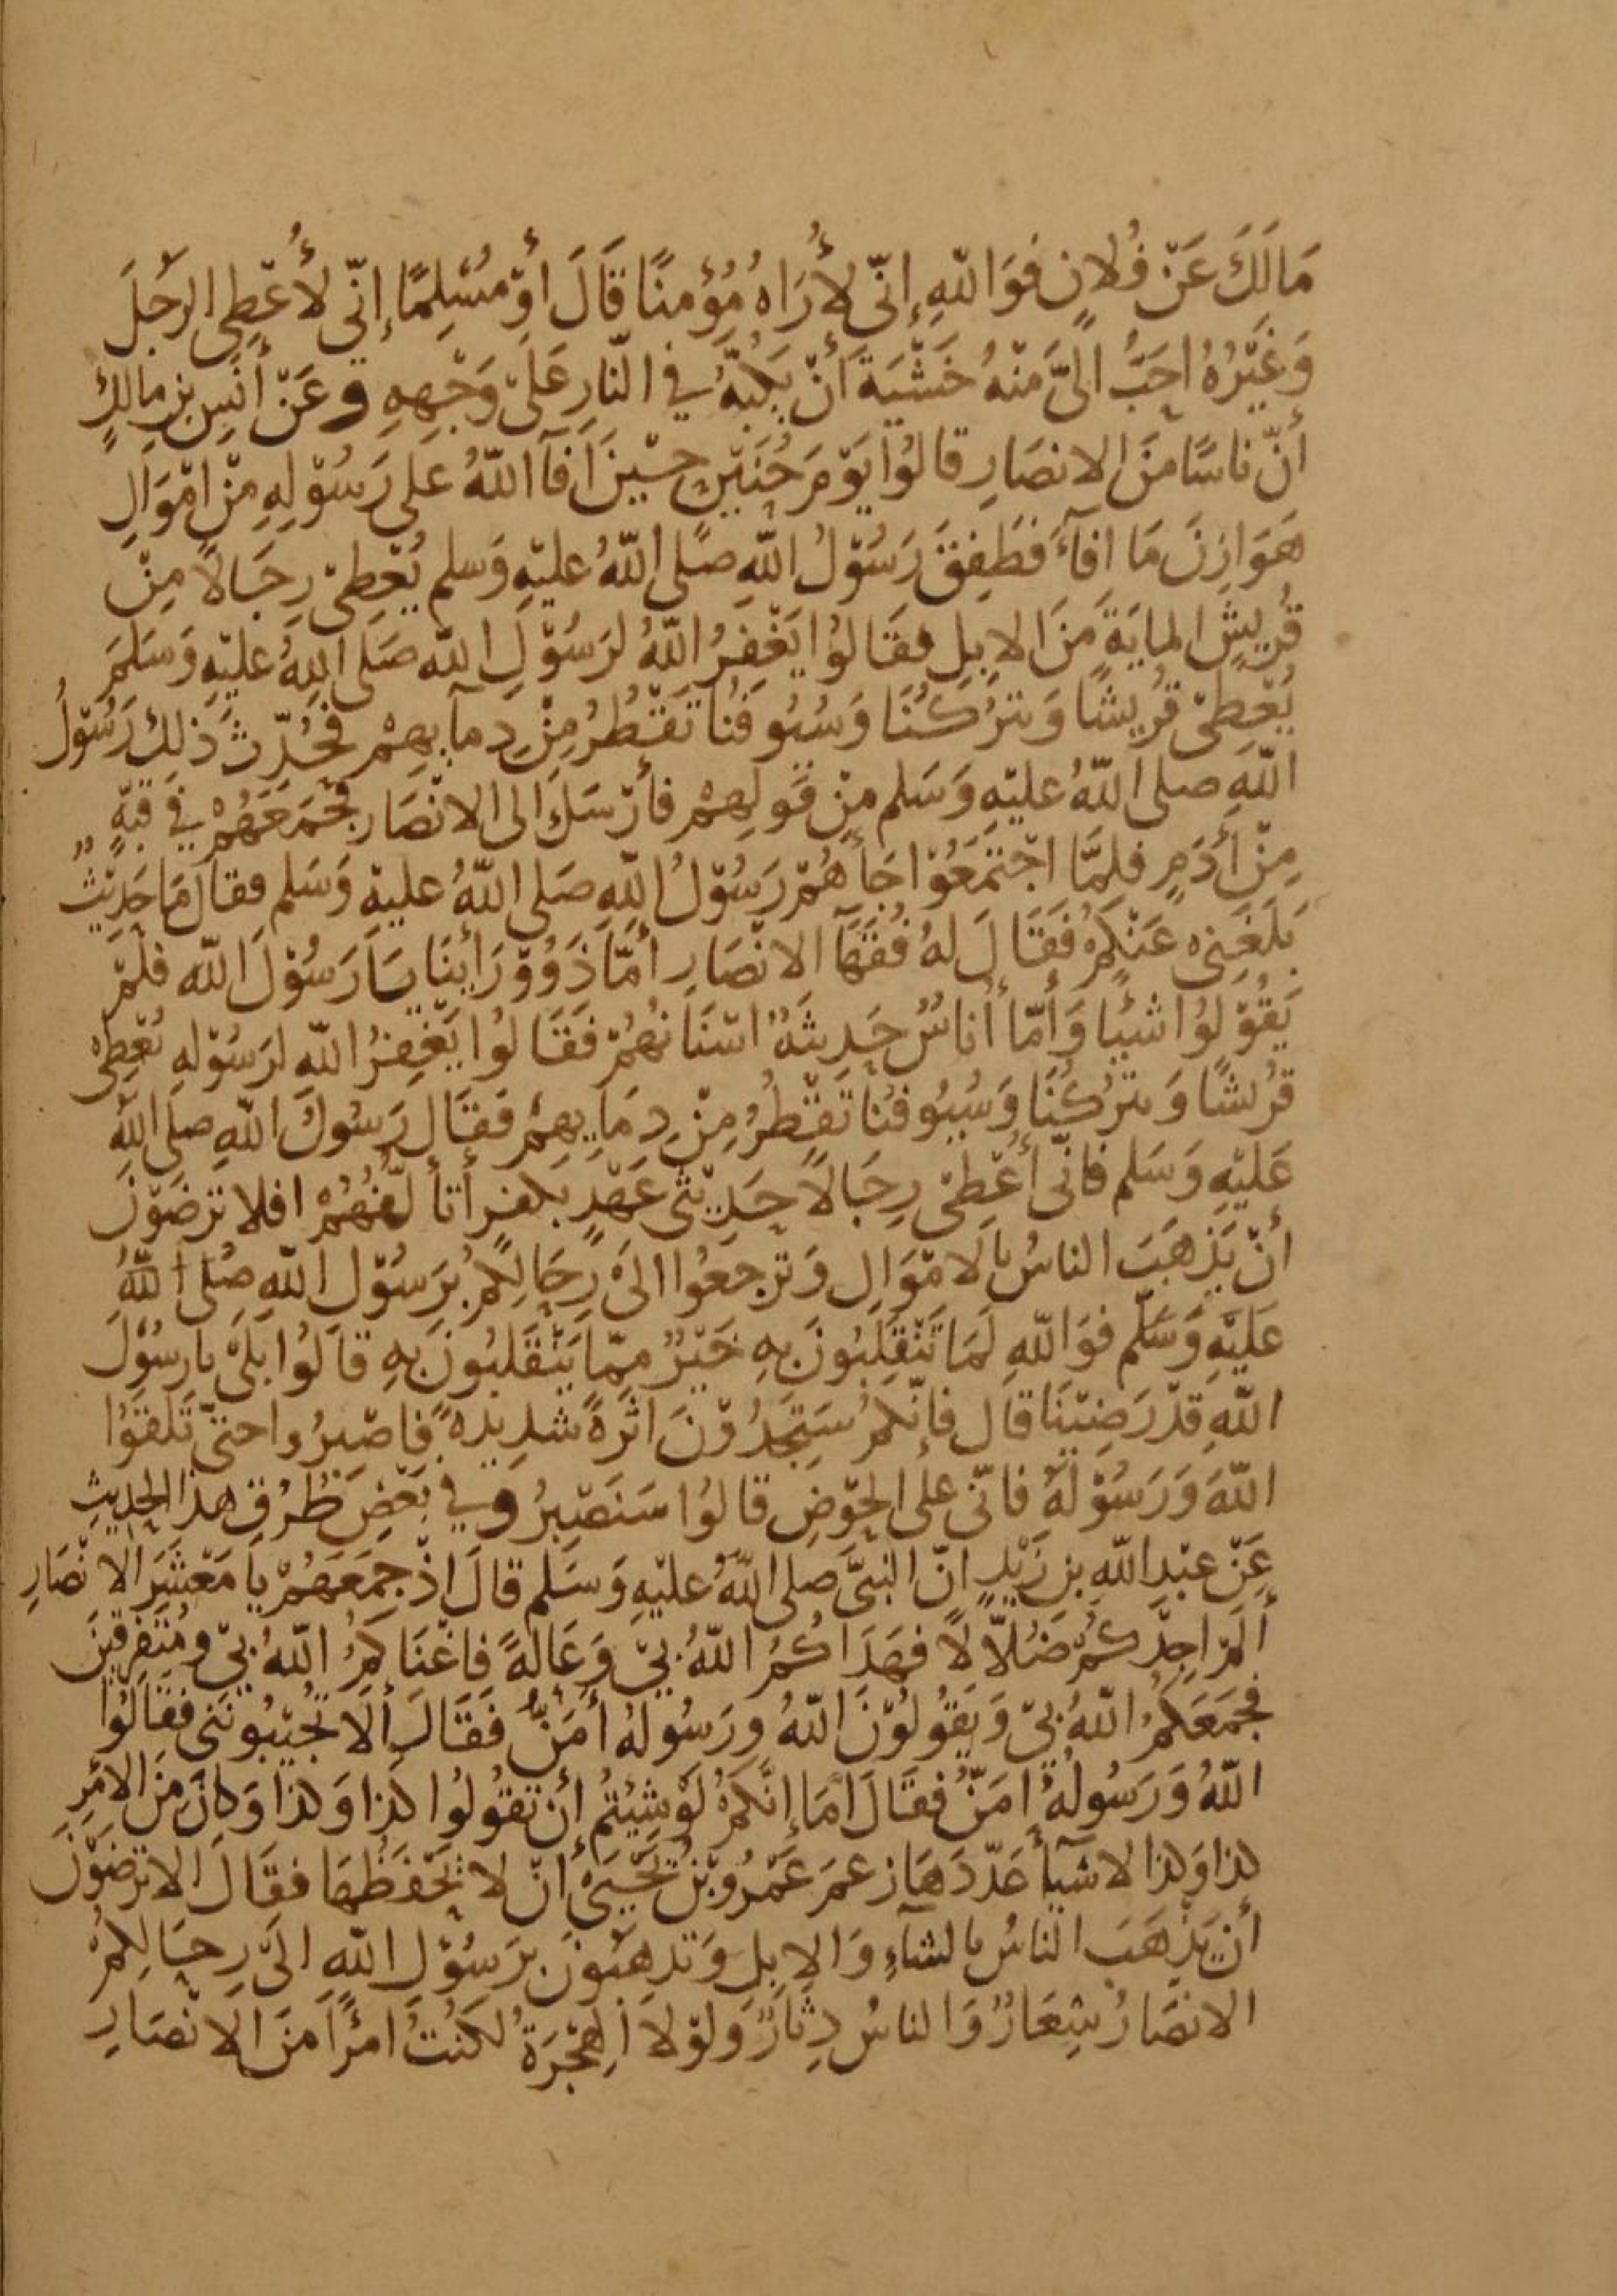 مَا لَكَ عَنْ فُلانٍ فَوَاللّهِ إنّي لأُرَاهُ مُؤْمنًا قَالَ أوْ مُسْلِمًا إنّي لأُعْطِي الرَجُلَ
وَغَيْرُهُ احَبُّ الَيَّ مِنْهُ خَشْيَةَ أنْ يَكُبَّهُ في النّارِ عَلَى وَجْهِهِ وعَنْ أنَسِ بنِ مالِكٍ
أنّ نَاسًا مِنَ الانصَارِ قالُوا يَوْمَ حُنَيْنٍ حِيْنَ افَآ اللّهُ عَلى رَسُوْلِهِ مِنْ امْوَالِ
هَوَازِنَ مَا افآءَ فَطَفِقَ رَسُوْلُ اللّهِ صَلى اللّهُ عليْهِ وَسَلم يُعْطِىْ رِجَالاً مِنْ
قُرَيشٍ المايَةَ مِنَ الابِلِ فقَالُوا يَغْفِرُ اللّهُ لرَسُوْلِ اللّه صَلى اللّهُ عليْهِ وَسَلمَ
يُعْطِىْ قُرَيشًا وَيتْرُكُنَا وَسُيُوفُنا تَقْطُرُ مِنْ دِمآيِهِمْ فَحُدّثَ ذَلكَ رَسُوْلُ
اللّهِ صلى اللّهُ عليْهِ وَسَلم مِنْ قَولِهِمْ فأرْسَلَ الى الانْصَارِ فَجَمَعَهُمْ في قبّةٍ
مِنْ أدَمٍ فلمَّا اجْتَمَعُوْا جَآءَهُمْ رَسُوْلُ اللّهِ صَلى اللّهُ عليْهِ وَسَلم فقالَ مَا حَدِيْثٌ
بَلَغَنِي عَنْكُمْ فَقَالَ لهُ فُقَهَآ الانْصَارِ أمَّا ذَوُوْ رَأيِنَا يَا رَسُوْلَ اللّه فلَمْ
يَقُوْلُوا شيْئا وَأمّا أُنَاسٌ حَدِيثَةٌ اسْنَانُهُمْ فَقَالُوا يَغْفِرُ اللّه لرَسُوْلِهِ يُعْطِىْ
قُرَيشًا وَيتْرُكُنَا وَسُيُوفُنَا تَقْطُرُ مِنْ دِمَايِهِمْ فَقَالَ رَسُولُ اللّهِ صلى اللّهُ
عَليْهِ وَسَلم فَانّي أُعْطِىْ رِجَالاً حَدِيْثي عَهْدٍ بكفرٍ أتأَلّفُهُمْ افلا تَرْضَوْنَ
أنْ يَذْهَبَ الناسُ بالامْوَالِ وَتَرجِعُوا الىَ رِحَالِكُمْ بِرَسُوْلِ اللّهِ صَلى اللّهُ
عَليْهِ وَسَلّم فوَاللّهِ لَمَا تَنْقَلِبُونَ بهِ خَيْرٌ مِمّا يَنْقَلِبُونَ بِهِ قالُوا بَلَىْ يا رسُوْلَ
اللّهِ قدْ رَضِيْنَا قال فإنّكُمْ سَتَجِدُوْنَ اثَرةً شَدِيدةً فاصْبِرُوا حتىّ تَلقَوُا
اللّهَ وَرَسُوْلَهُ فانّي عَلى الحَوْضِ قالُوا سَنَصْبِرُ وفي بَعْضِ طُرُقِ هذا الحَدِيثِ
عَنْ عبْدِ اللّهِ بنِ زَيْدٍ انّ النبيَّ صلى اللّهُ عليْهِ وَسَلم قالَ اذْ جمَعَهُمْ يا مَعْشَرَ الانْصَارِ
ألَمْ اجِدْكُمْ ضُلّالاً فهَدَاكُمُ اللّهُ بيْ وَعَالَةً فَاغْنَاكُمُ اللّهُ بيْ ومُتَفَرِقينَ
فجمَعَكُمُ اللّهُ بيْ وَيَقُولُوْنَ اللّهُ ورَسُولُهُ أمَنُّ فقَالَ ألَا تُجيْبُونَني فقَالُوا
اللّهُ وَرَسُولُهُ امَنُّ فقَالَ أمَا إنّكُمْ لَوْ شِيْتُمْ أنْ تقُولُوا كذا وَكذا وَكانَ مِنَ الامْرِ
كذا وَكذا لاشيآءَ عَدّدَهَا زعمَ عَمْرُو بْنُ يَحْيَى أنْ لا يَحْفَظُهَا فقَالَ الا تَرْضَوْنَ
أنْ يَذْهَبَ الناسُ بالشآءِ وَالابِلِ وَتذهَبُونَ برَسُوْلِ اللّهِ الىَ رِحَالِكُمْ
الانصَارُ شِعَارٌ وَالناسُ دِثَارٌ وَلوْلا الهِجْرَةُ لكُنْتُ امْرأً مِنَ الانْصَارِ